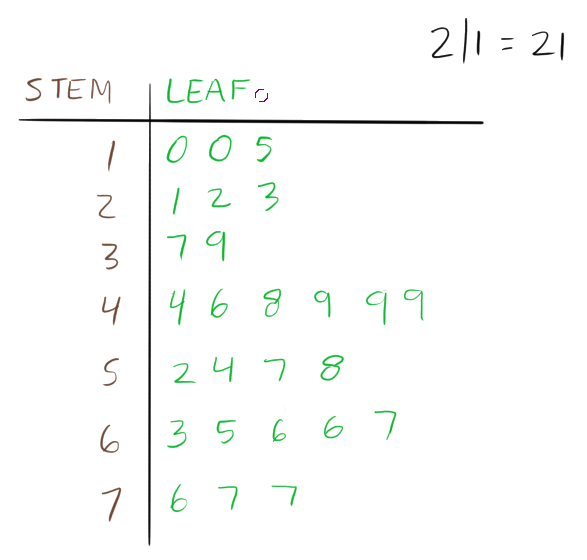 2|1 = 21
STEM | LEAF
1 | 0 0 5
2 | 1 2 3
3 | 7 9
4 | 4 6 8 9 9 9
5 | 2 4 7 8
6 | 3 5 6 6 7
7 | 6 7 7